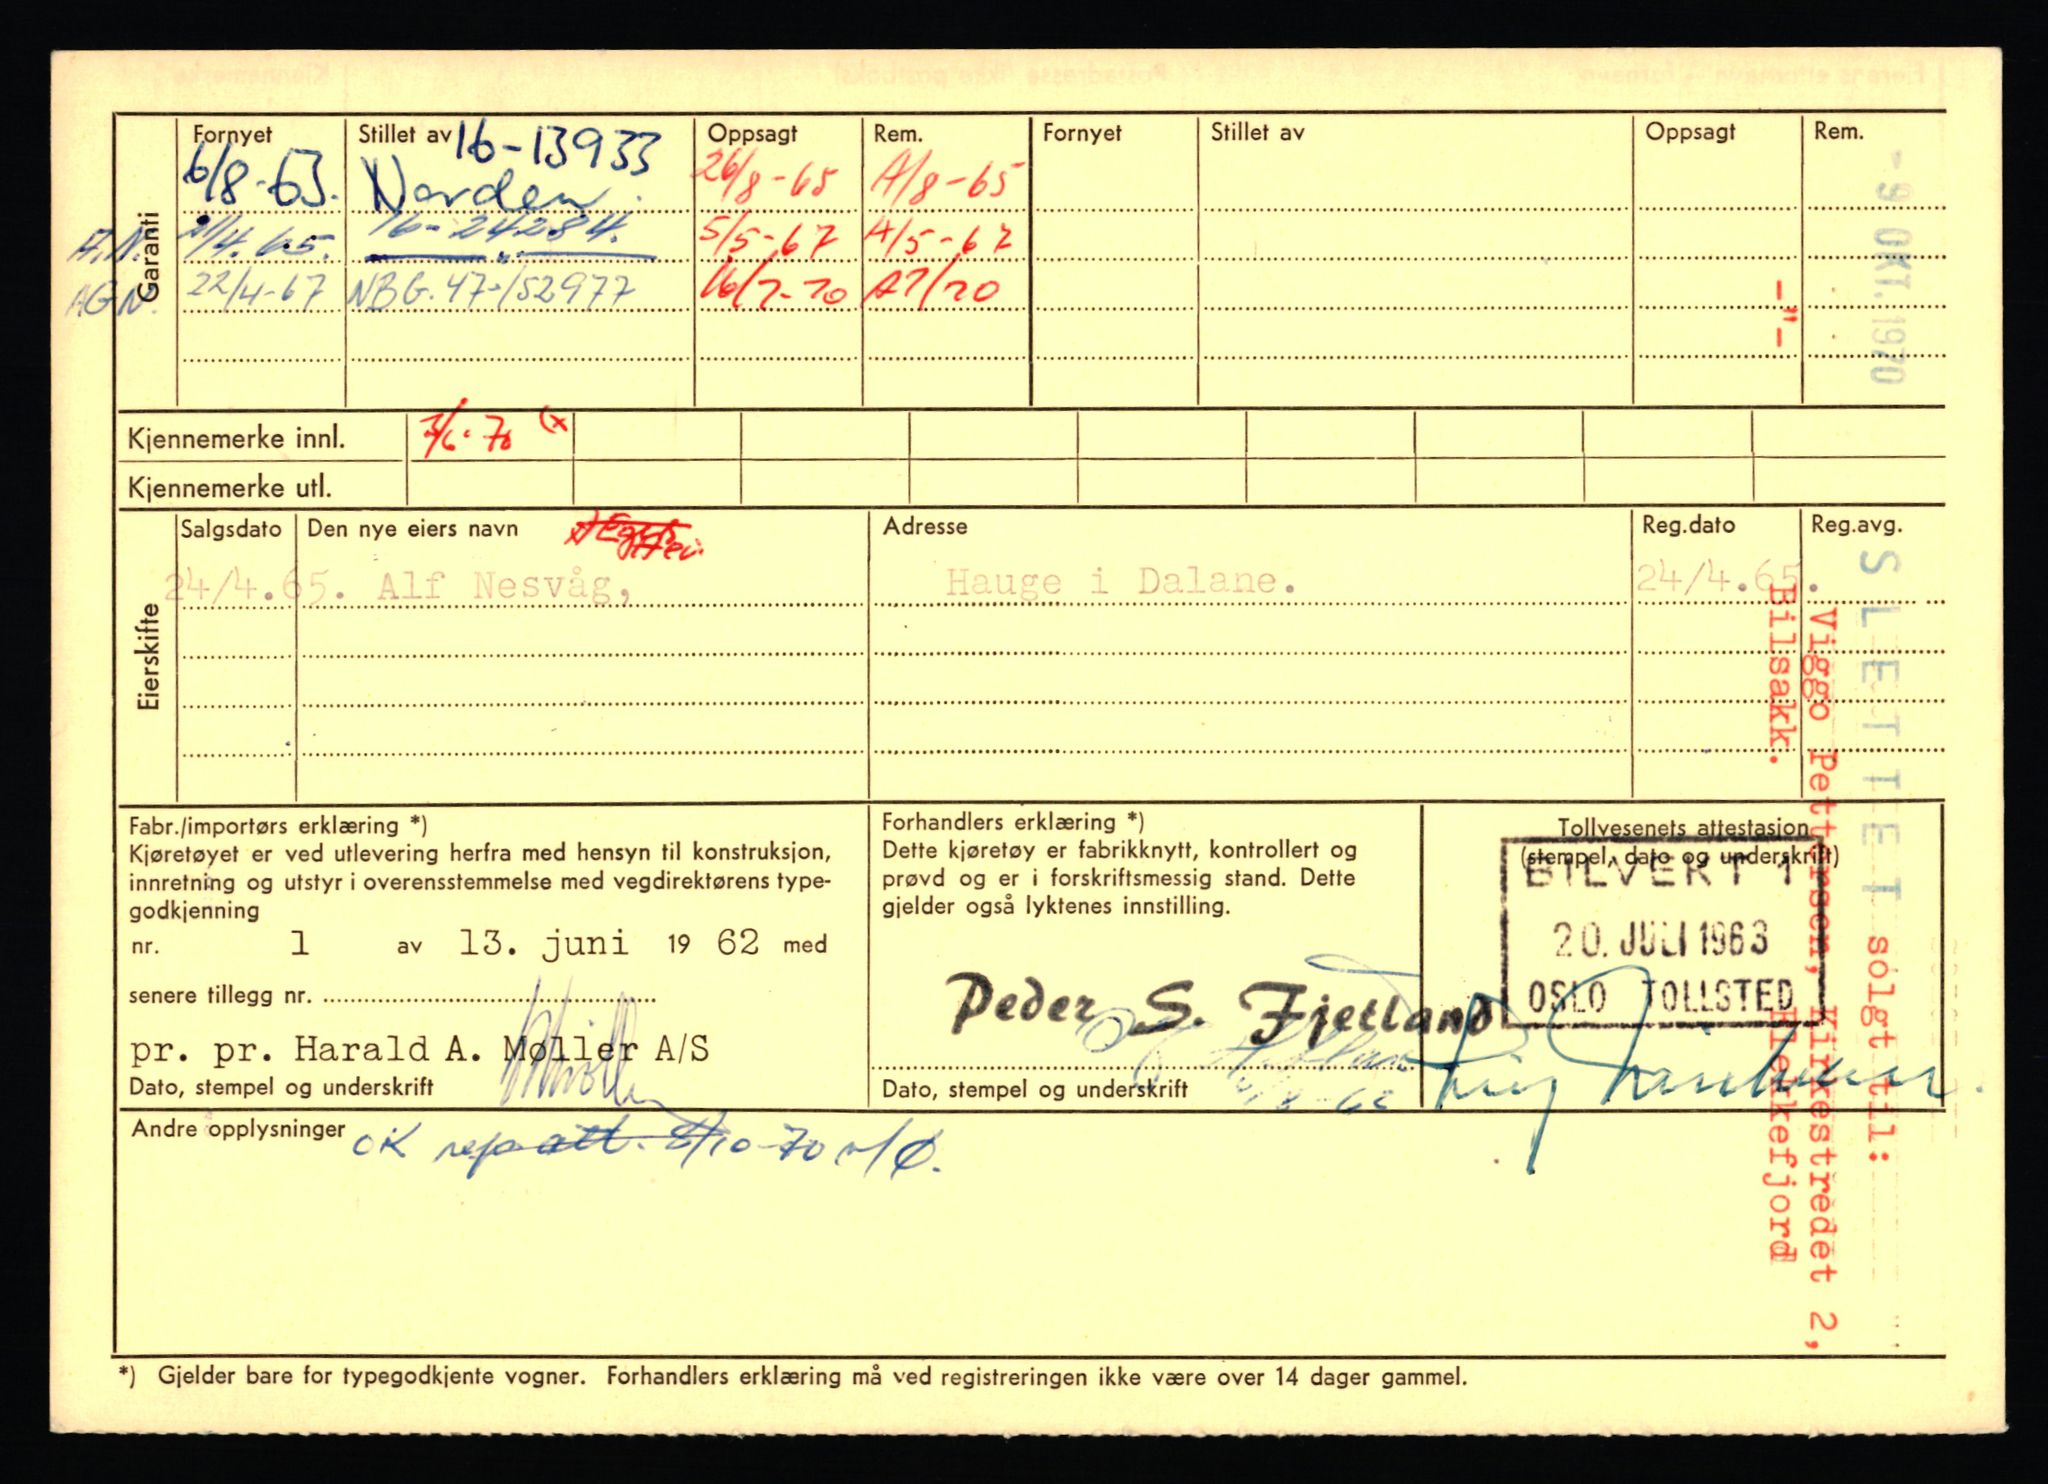 Garanti
Fornyet Stillet av 16-13933 Oppsagt Rem. Fornyet Stillet av Oppsagt Rem.
6/8-63. Norden. 26/8-65 A/8-65
A.N. /4.65. 16-24284. 5/5-67 A/5-67
AGN. 22/4-67 NBG.47-152977 16/7-70 A7/70
-"-
- 9 OKT. 1970
Kjennemerke innl. 3/6-70 (x
Kjennemerke utl.
Eierskifte
Salgsdato Den nye eiers navn Adresse Reg.dato Reg.avg.
24/4.65. Alf Nesvåg, Hauge i Dalane. 24/4.65.
SLETTET solgt til:
Viggo Pettersen, Kirkestredet 2,
Bilsakk. Flekkefjord
Fabr./importørs erklæring *)
Kjøretøyet er ved utlevering herfra med hensyn til konstruksjon,
innretning og utstyr i overensstemmelse med vegdirektørens type-
godkjenning
nr. 1 av 13. juni 19 62 med
senere tillegg nr.
pr. pr. Harald A. Møller A/S
Dato, stempel og underskrift
Forhandlers erklæring *)
Dette kjøretøy er fabrikknytt, kontrollert og
prøvd og er i forskriftsmessig stand. Dette
gjelder også lyktenes innstilling.
Peder S. Fjetland
Dato, stempel og underskrift
Tollvesenets attestasjon
(stempel, dato og underskrift)
BILVERT 1
20. JULI 1963
OSLO TOLLSTED
Andre opplysninger OK rep att. 8/10-70 n/Ø.
*) Gjelder bare for typegodkjente vogner. Forhandlers erklæring må ved registreringen ikke være over 14 dager gammel.